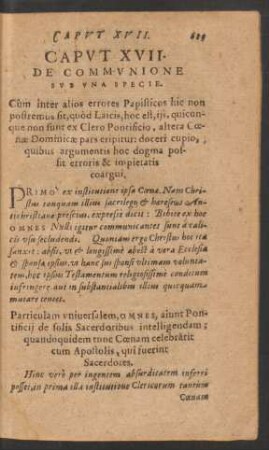 CAPVT XVII.
CAPVT XVII.
DE COMMVNIONE
SVB VNA SPECIE.
Cùm inter alios errores Papisticos hic non
postremus sit, quòd Laicis, hoc est, iis, quicun-
que non sunt ex Clero Pontificio, altera Cœ-
næ Dominicæ pars eripitur: doceri cupio,
quibus argumentis hoc dogma pos-
sit erroris & impietatis
coargui.
PRIMÒ ex institutione ipsa Cœnæ. Nam Chri-
stus tanquam illum sacrilegū & hæreseos An-
tichristianæ præscius, expresse dicit: Bibite ex hoc
OMNES Nulli igitur communicantes sunt à cali-
cis vsu secludendi. Quoniam ergo Christus hoc ita
sanxit: absit, vt & longissimè absit à vera Ecclesia
& sponsa ipsius, vt hanc sui sponsi vltimam volunta-
tem, hoc ipsius Testamentum religiosissimè conditum
infringere aut in substantialibus illius quicquam
mutare tentet.
Particulam vniuersalem, OMNES, aiunt Pon-
tificij de solis Sacerdotibus intelligendam;
quandoquidem tunc Cœnam celebrârit
cum Apostolis, qui fuerint
Sacerdotes.
Hinc verò per ingentem absurditatem inferri
posset, in prima illa institutione Clericorum tantùm
Cœnam